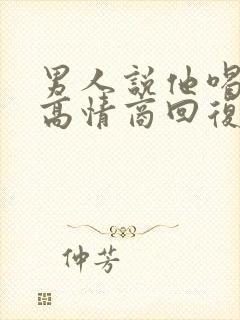 男人說他喝
高情商回復
仲芳